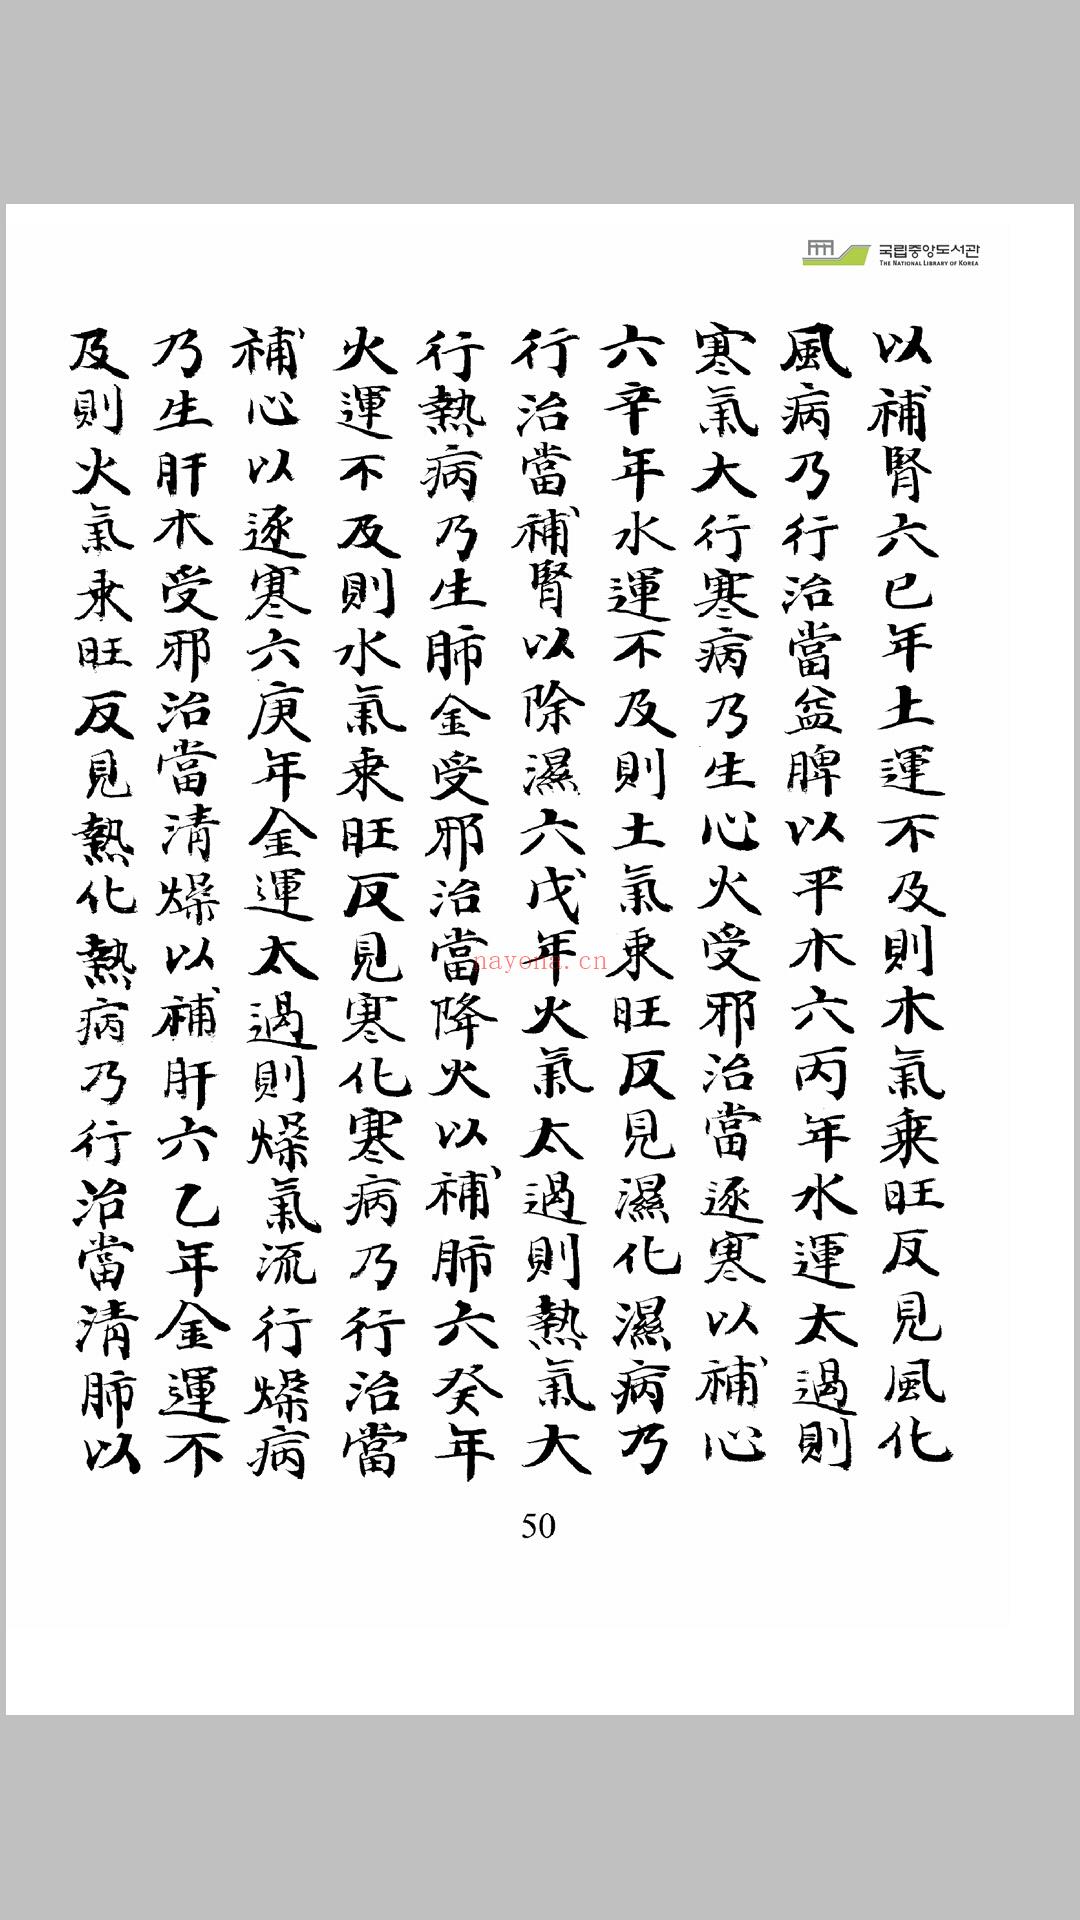 국립중앙도서관
THE NATIONAL LIBRARY OF KOREA
以補腎六已年土運不及則木氣乗旺反見風化
風病乃行治當益脾以平木六丙年水運太過則
寒氣大行寒病乃生心火受邪治當逐寒以補心
六辛年水運不及則土氣乗旺反見濕化濕病乃
行治當補腎以除濕六戊年火氣太過則熱氣大
行熱病乃生肺金受邪治當降火以補肺六癸年
火運不及則水氣乗旺反見寒化寒病乃行治當
補心以逐寒六庚年金運太過則燥氣流行燥病
乃生肝木受邪治當清燥以補肝六乙年金運不
及則火氣乗旺反見熱化熱病乃行治當清肺以
nayona.cn
50